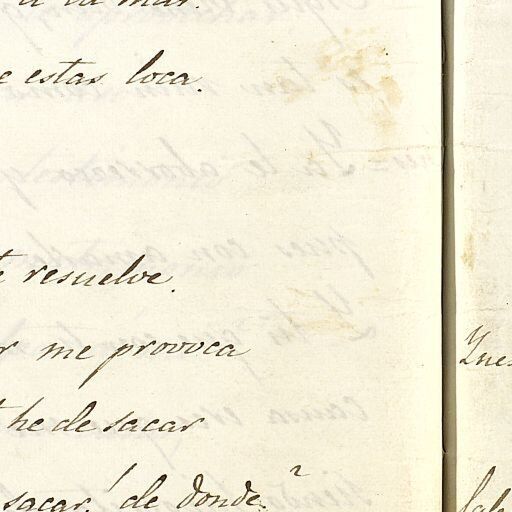 a la mar.
e estas loca.
te resuelve.
r me provoca
he de sacar
sacar! de donde?
Ynes
Sale